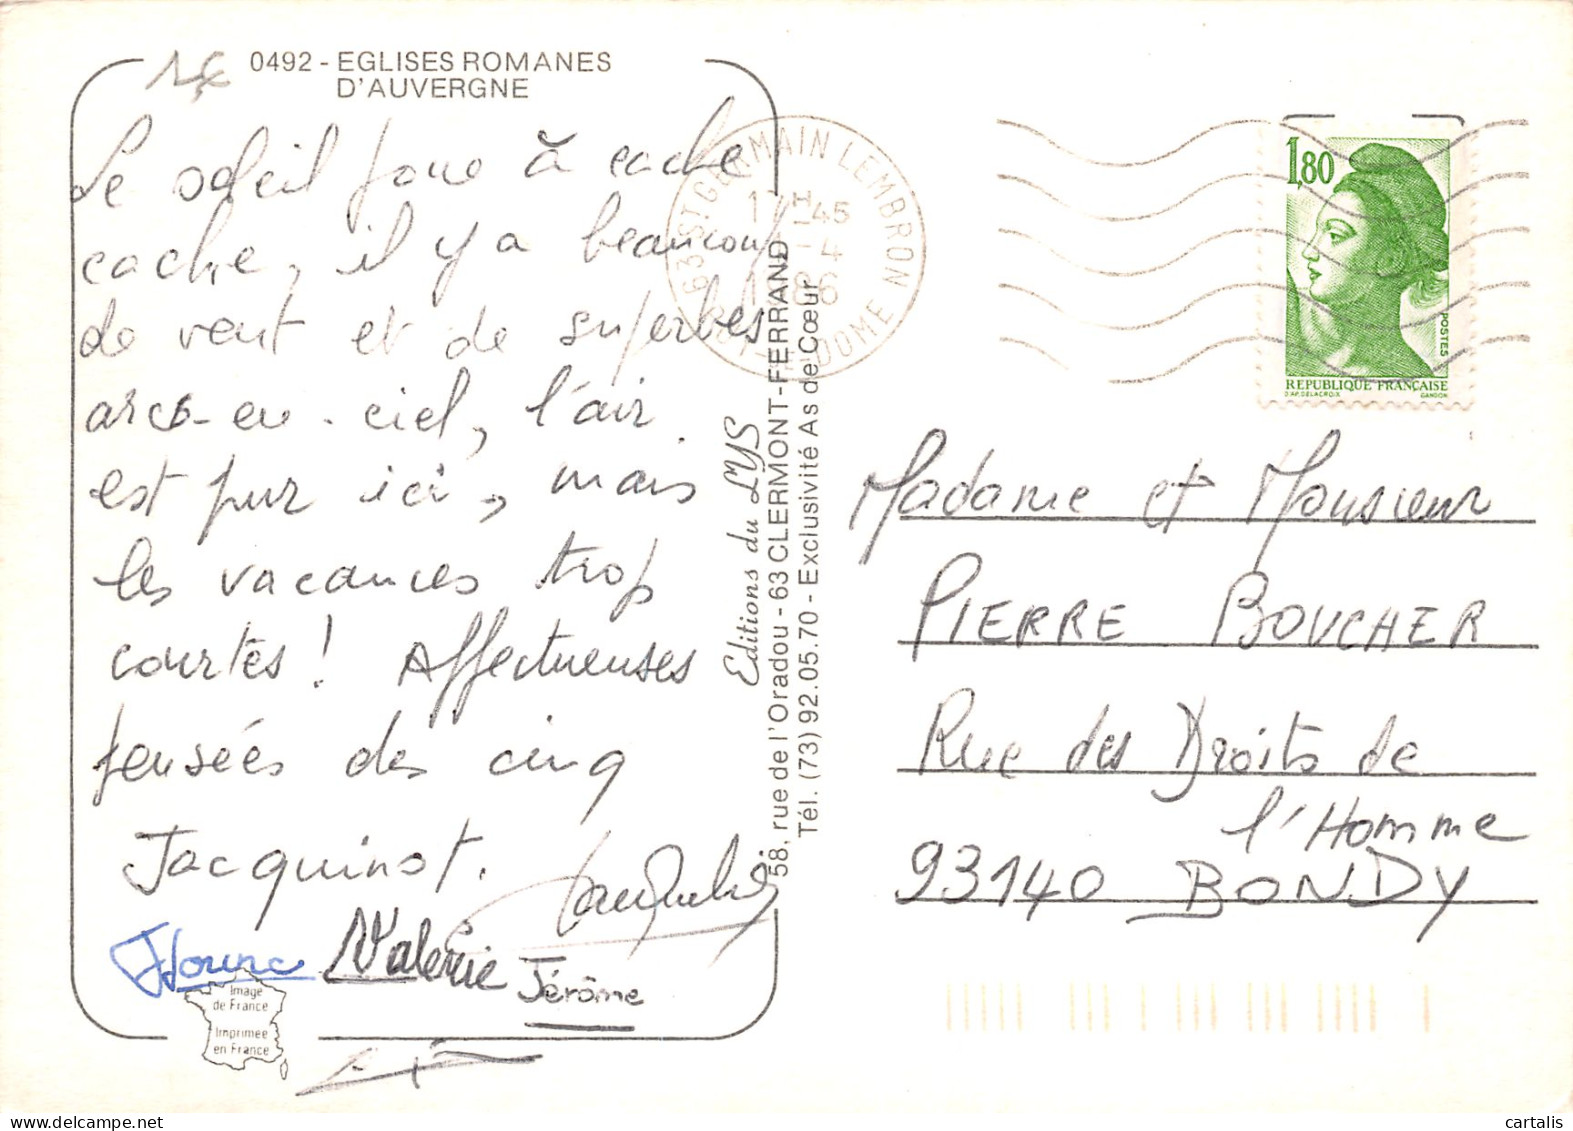 1€
0492 - EGLISES ROMANES
D'AUVERGNE
Le soleil joue à cache
cache, il y a beaucoup
de vent et de superbes
arcs-en-ciel, l'air
est pur ici, mais
les vacances trop
courtes ! Affectueuses
pensées des cinq
Jacquinot.
Valérie
Jérôme
Image
de France
Imprimée
en France
Editions du LYS
58, rue de l'Oradou - 63 CLERMONT-FERRAND
Tél. (73) 92.05.70 - Exclusivité As de Cœur
63 ST GERMAIN LEMBRON
17H45
-4
1986
PUY-DE-DOME
1,80
POSTES
REPUBLIQUE FRANÇAISE
D'AP. DELACROIX GANDON
Madame et Monsieur
PIERRE BOUCHER
Rue des Droits de
l'Homme
93140 BONDY
cartalis